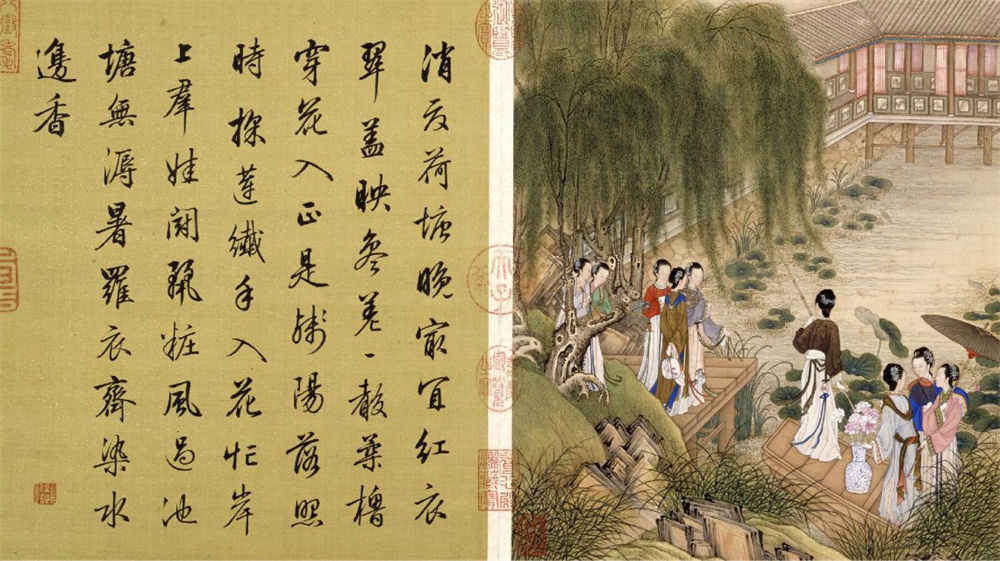 消夏荷塘晚最宜紅衣
翠蓋映參差一聲柔櫓
穿花入正是殘陽落照
時採蓮纖手入花忙岸
上羣娃鬪麗粧風過池
塘無溽暑羅衣齊染水
邊香